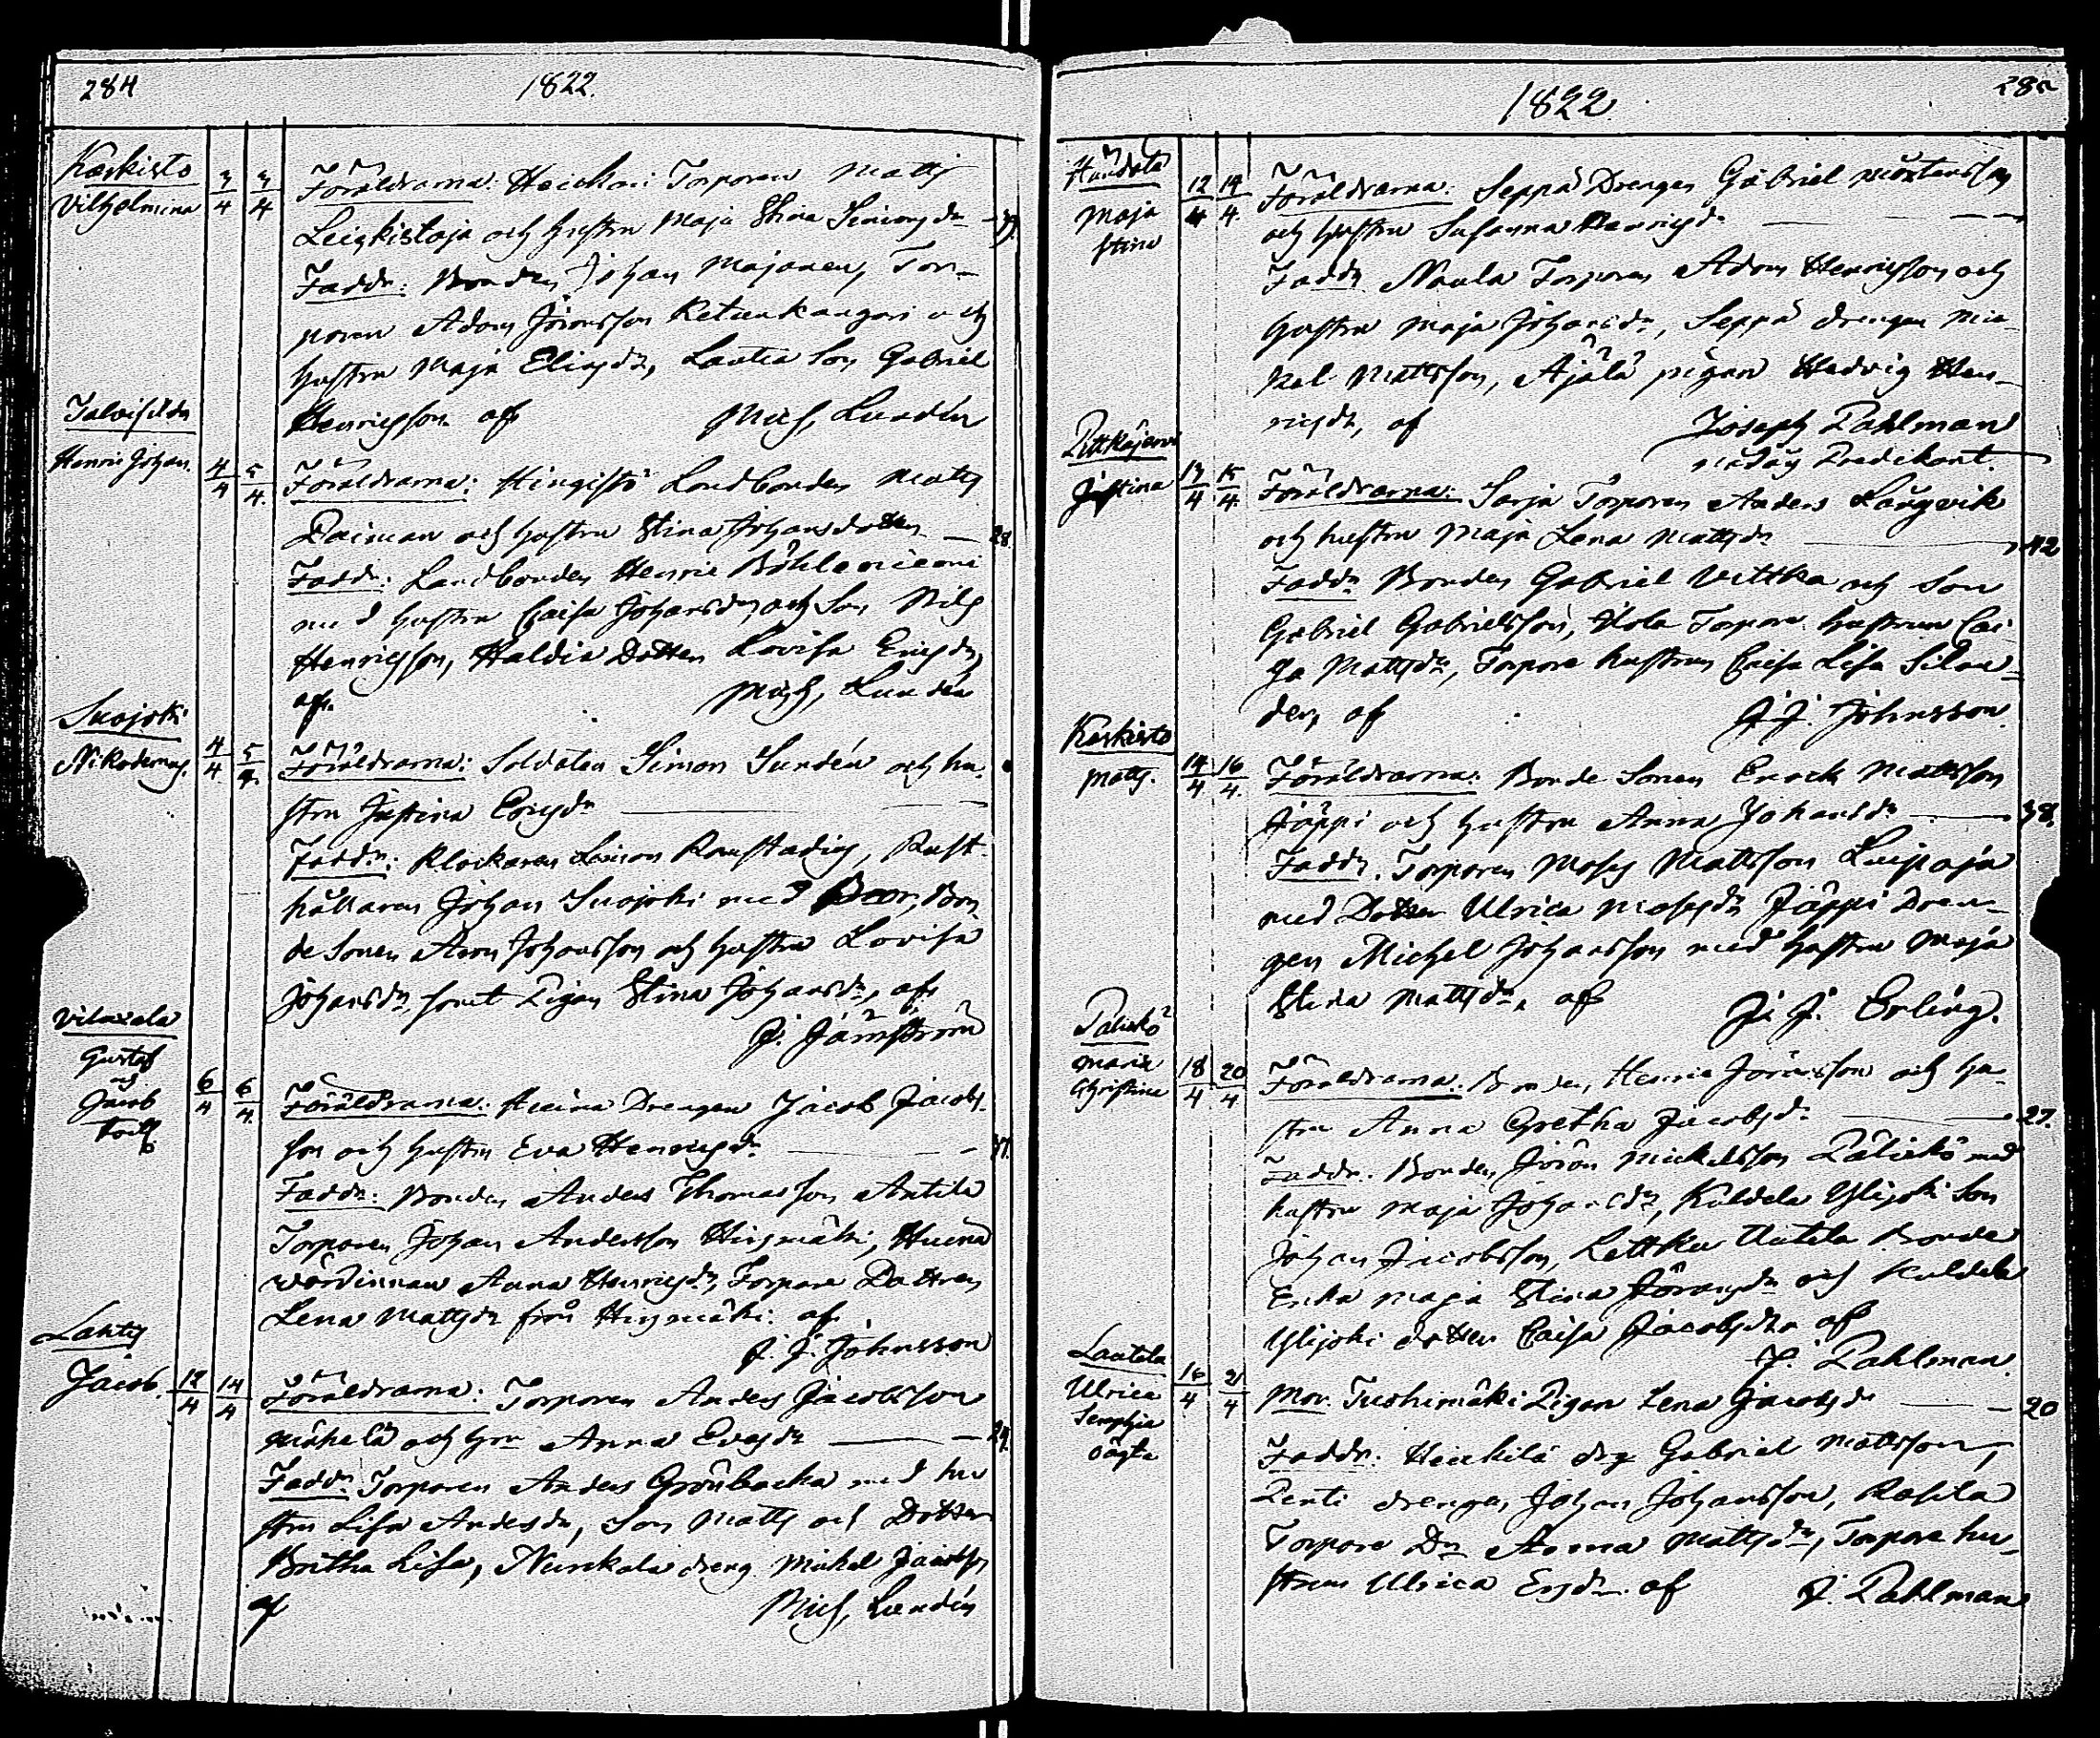 284
1822.
Karkisto
Vilhelmina
3/4 4/4
Föräldrarna: Heickari Torparen Matts
Leigkistoja och hustru Maja Stina Simonsdr
Faddr: Bonden Johan Majanen, Tor-
paren Adam Jöransson Retunkangari och
hustru Maja Eliedr, Lautia Son Gabriel
Henricsson af Mich, Lundén
Henric Johan.
4/4 5/4.
Föräldrarna: Hingistö Landbonden Matts
Paiman och hustru Stina Johansdotter 28.
Faddr: Landbonden Henric Böhleniemi
med hustru Caisa Johansdr, och Son Nils
Henricsson, Haldia Dotter Lovisa Ericsdr
af. Mich, Lundén
Suojoki
Nikodemus.
4/4. 5/4.
Föräldrarna: Soldaten Simon Sundén och hu-
stru Justina Ericsdr
Faddr: Klockaren Simon Ranstadius, Rust-
hållaren Johan Suojoki med Bror, Bon-
de Sonen Aron Johansson och hustru Lovisa
Johansdr, samt Pigan Stina Johansdr, af
J. Jämström
Gustaf
och
Jacob
6/4 6/4.
Föräldrarna: Drengen Jacob Jacobs-
son och hustru Eva Henricsdr
Faddr: Bonden Anders Thomasson Antila
Torparen Johan Andersson Hirsmäki,
wärdinnan Anna Henricsdr, Torpare Dottren
Lena Mattsdr från Hirsmäki. af
J. J. Johnsson
Lahtis
Jacob.
12/4 14/4
Föräldrarna: Torparen Anders Jacobsson
Mäkelä och hru Anna Evasdr 29.
Faddr: Torparen Anders Grönbacka med hu
stru Lisa Andersdr, Son Matts och Dotter
Britha Lisa, Nurckala dreng Mickel Jacobss
af Mich, Lundén
1822
Maja
Stina
12/4 14/4.
Föräldrarna: Seppä Drengen Gabriel Mårtensson
och hustru Susanna Henricsdr
Faddr Naula Torparen Adam Henricsson och
hustru Maja Johansdr, Seppä drengen Mic-
kel Mattsson, Äjälä pigan Hedvig Hen-
ricsdr, af Joseph Pahlman
nådaårs Predikant.
Pittkäjervi
Justina
13/4 15/4.
Föräldrarna: Sarja Torparen Anders Långvik
och hustru Maja Lena Mattsdr 42
Faddr. Bonden Gabriel Vittka och Son
Gabriel Gabrielsson, Torpare hustrun Cai-
sa Mattsdr, Torpare hustrun Caisa Lisa Silan-
der, af J. J. Johnsson
Karkisto
Matts.
14/4 16/4.
Föräldrarna: Bonde Sonen Enock Mattsson
Jöppi och hustru Anna Johansdr 38.
Faddr. Torparen Moses Mattsson Luipaja
med Dotter Ulrica Mosesdr Jöppi Dren-
gen Michel Johansson med hustru Maja
Stina Mattsdr, af J. J. Erling.
Maria
Christina
18/4 20/4
Föräldrarna: Bonden Henric Jöransson och hu-
stru Anna Gretha Jacobsdr 27.
Faddr. Bonden Jöran Mickelsson Pälickö med
hustru Maja Johansdr, Kuldela Ylijoki Son
Johan Jacobsson, Lettku Uutela Bonde
Enka Maja Stina Jöransdr och Kuldela
Ylijoki dotter Caisa Jacobsdr af
J. Pahlman
Lautela
Ulrica
16/4 21/4
Mor. Tuohimäki Pigan Lena Jacobsdr 20
Faddr: Heickilä drg Gabriel Mattsson,
Penti drengen Johan Johansson, Rasila
Torpare Dr Anna Mattsdr, Torpare hu-
strun Ulrica Ersdr. af J. Pahlman